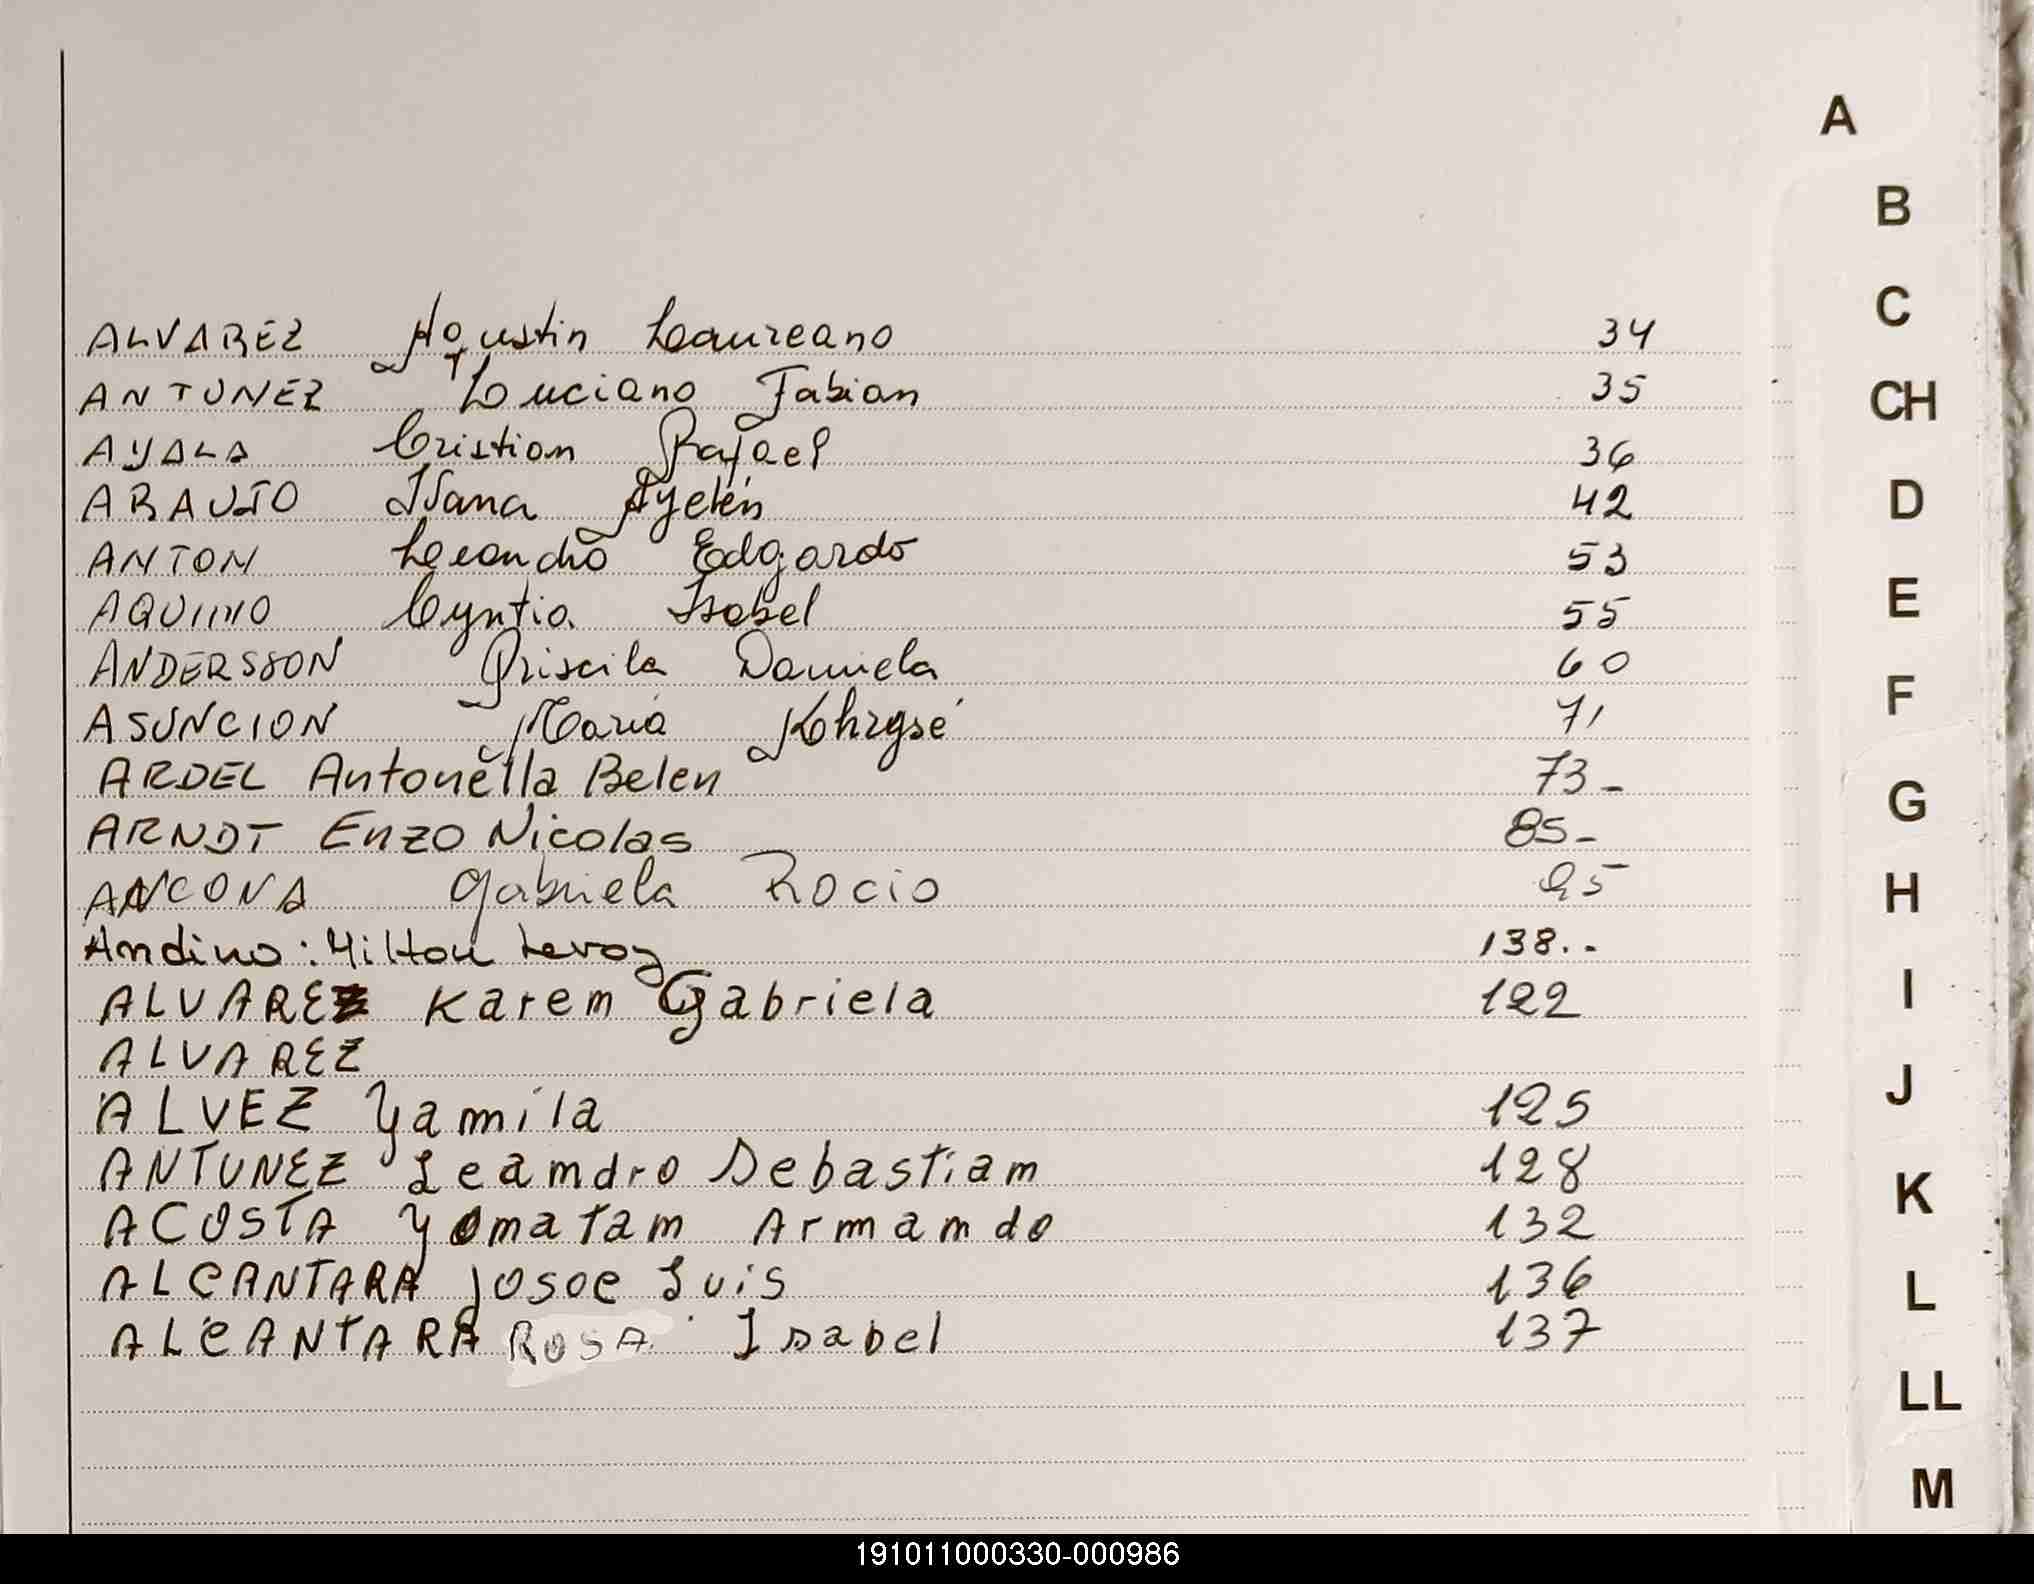 A
B
C
ALVAREZ Agustin Laureano 34
ANTUNEZ Luciano Fabian 35
CH
AYALA Cristian Rafael 36
ARAUJO Ivana Ayelén 42
D
ANTON Leandro Edgardo 53
AQUINO Cyntia Isabel 55
E
ANDERSSON Priscila Daniela 60
F
ASUNCION Maria 71
ARDEL Antonella Belen 73-
G
ARNDT Enzo Nicolas 85-
ANCONA Gabriela Rocio 95
H
Andino: Milton Leroy 138..
ALVAREZ Karem Gabriela 122
I
ALVAREZ
J
ALVEZ Yamila 125
ANTUNEZ Leamdro Sebastiam 128
K
ACOSTA Yomatam Armamdo 132
ALCANTARA Josoe Luis 136
L
ALCANTARA ROSA Isabel 137
LL
M
191011000330-000986